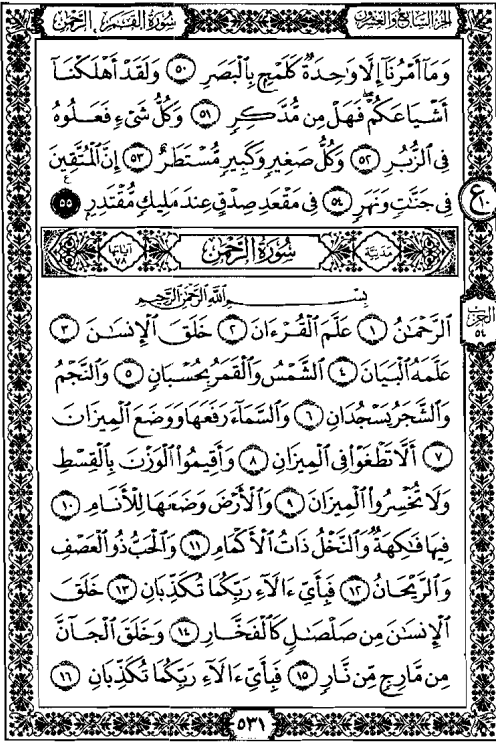 الجزء السابع والعشرون
سُورَةُ القَمَر، الرَّحْمٰن
وَمَآ أَمۡرُنَآ إِلَّا وَٰحِدَةٞ كَلَمۡحِۭ بِٱلۡبَصَرِ ٥٠ وَلَقَدۡ أَهۡلَكۡنَآ
أَشۡيَاعَكُمۡ فَهَلۡ مِن مُّدَّكِرٖ ٥١ وَكُلُّ شَيۡءٖ فَعَلُوهُ
فِي ٱلزُّبُرِ ٥٢ وَكُلُّ صَغِيرٖ وَكَبِيرٖ مُّسۡتَطَرٌ ٥٣ إِنَّ ٱلۡمُتَّقِينَ
فِي جَنَّٰتٖ وَنَهَرٖ ٥٤ فِي مَقۡعَدِ صِدۡقٍ عِندَ مَلِيكٖ مُّقۡتَدِرِۭ ٥٥
ع ١٠
مَدَنِيَّة
سُورَةُ الرَّحْمٰن
آيَاتُهَا ٧٨
بِسۡمِ ٱللَّهِ ٱلرَّحۡمَٰنِ ٱلرَّحِيمِ
الحزب ٥٤
ٱلرَّحۡمَٰنُ ١ عَلَّمَ ٱلۡقُرۡءَانَ ٢ خَلَقَ ٱلۡإِنسَٰنَ ٣
عَلَّمَهُ ٱلۡبَيَانَ ٤ ٱلشَّمۡسُ وَٱلۡقَمَرُ بِحُسۡبَانٖ ٥ وَٱلنَّجۡمُ
وَٱلشَّجَرُ يَسۡجُدَانِ ٦ وَٱلسَّمَآءَ رَفَعَهَا وَوَضَعَ ٱلۡمِيزَانَ
٧ أَلَّا تَطۡغَوۡاْ فِي ٱلۡمِيزَانِ ٨ وَأَقِيمُواْ ٱلۡوَزۡنَ بِٱلۡقِسۡطِ
وَلَا تُخۡسِرُواْ ٱلۡمِيزَانَ ٩ وَٱلۡأَرۡضَ وَضَعَهَا لِلۡأَنَامِ ١٠
فِيهَا فَٰكِهَةٞ وَٱلنَّخۡلُ ذَاتُ ٱلۡأَكۡمَامِ ١١ وَٱلۡحَبُّ ذُو ٱلۡعَصۡفِ
وَٱلرَّيۡحَانُ ١٢ فَبِأَيِّ ءَالَآءِ رَبِّكُمَا تُكَذِّبَانِ ١٣ خَلَقَ
ٱلۡإِنسَٰنَ مِن صَلۡصَٰلٖ كَٱلۡفَخَّارِ ١٤ وَخَلَقَ ٱلۡجَآنَّ
مِن مَّارِجٖ مِّن نَّارٖ ١٥ فَبِأَيِّ ءَالَآءِ رَبِّكُمَا تُكَذِّبَانِ ١٦
٥٣١